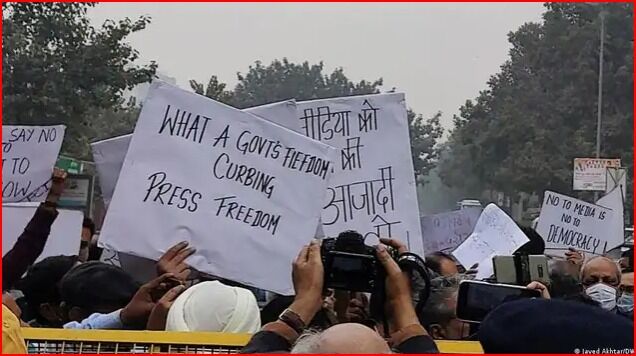 SAY NO
TO
WHAT A GOVT'S FIEFDOM
CURBING
PRESS FREEDOM
मीडिया को
की
आजादी
दो
NO TO MEDIA IS
NO TO
DEMOCRACY
Javed Akhtar/DW